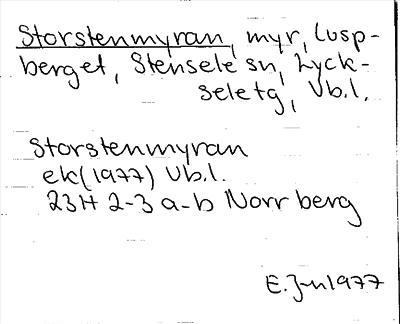 Storstenmyran, myr, Lusp-
berget, Stensele sn, Lyck-
sele tg, Vb.l.
Storstenmyran
ek (1977) Vb.l.
23H 2-3 a-b Norrberg
E. Jn 1977